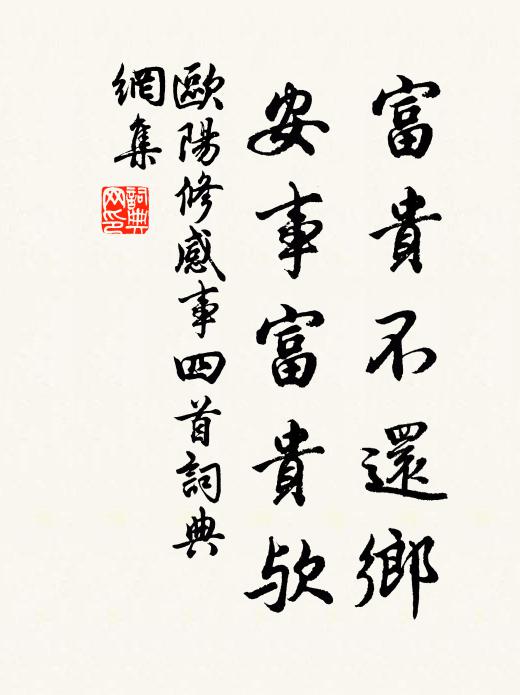 富貴不還鄉
安事富貴歟
歐陽修感事四首詞典
網集
詞典
网印